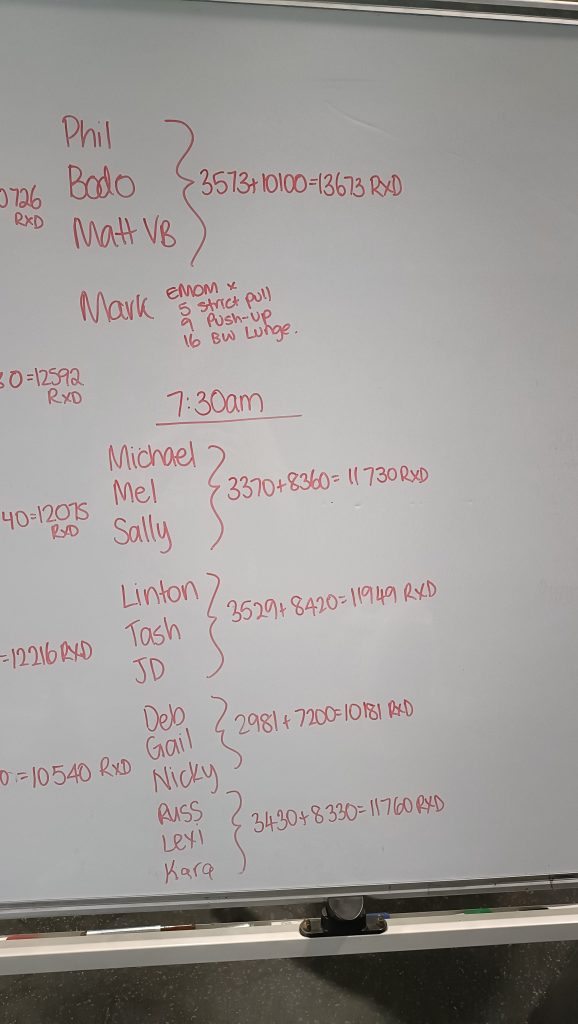 Phil
Bodo
Matt VB
3573+10100=13673 RXD
0726
RXD
Mark
EMOM x
5 Strict Pull
9 Push-up
16 BW Lunge.
30=12592
RXD
7:30am
Michael
Mel
Sally
3370+8360=11730 RXD
40=12075
RXD
Linton
Tash
JD
3529+8420=11949 RXD
=12216 RXD
Deb
Gail
Nicky
2981+7200=10181 RXD
0.=10540 RXD
Russ
Lexi
Kara
3430+8330=11760 RXD